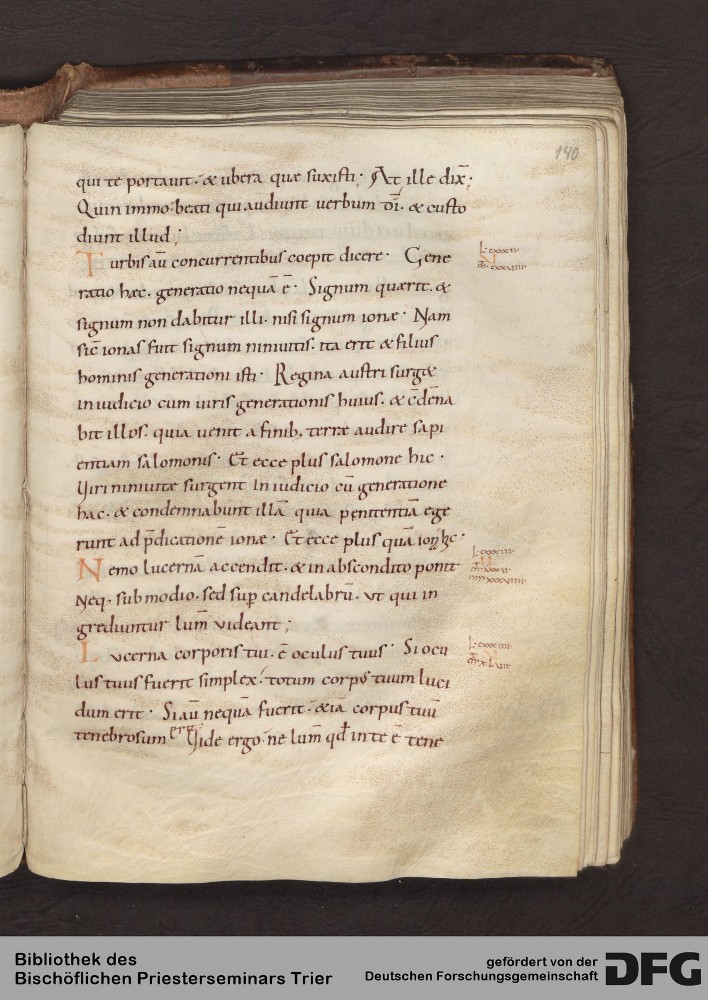 140
qui te portauit · & ubera quae suxisti ; At ille dix̄ ;
Quin immo · beati qui audiunt uerbum dī · & custo
diunt illud ;
Turbis aū concurrentibus coepit dicere · Gene
ratio haec · generatio nequā ē · Signum quaerit · &
signum non dabitur illi · nisi signum ionae · Nam
sic̄ ionas fuit signum niniuitis · ita erit & filius
hominis generationi isti · Regina austri surg&
in iudicio cum uiris generationis huius · & c̄dēna
bit illos · quia uenit a finib; terrae audire sapi
entiam salomonis · Et ecce plus salomone hic ·
Uiri niniuitae surgent in iudicio cū generatione
hac · & condemnabunt illā quia penitentiā ege
runt ad p̄dicationē ionae · Et ecce plus quā ionę hc ·
Nemo lucernā accendit · & in abscondito ponit
Neq; sub modio · sed sup̄ candelabrū · ut qui in
grediuntur lum̄ uideant ;
Lucerna corporis tui · ē oculus tuus · Si ocu
lus tuus fuerit simplex · totum corpus tuum luci
dum erit · Si aū nequā fuerit · &iā corpus tuū
tenebrosum erit Uide ergo · ne lum̄ qđ in te ē tene
Bibliothek des
Bischöflichen Priesterseminars Trier
gefördert von der
Deutschen Forschungsgemeinschaft
DFG